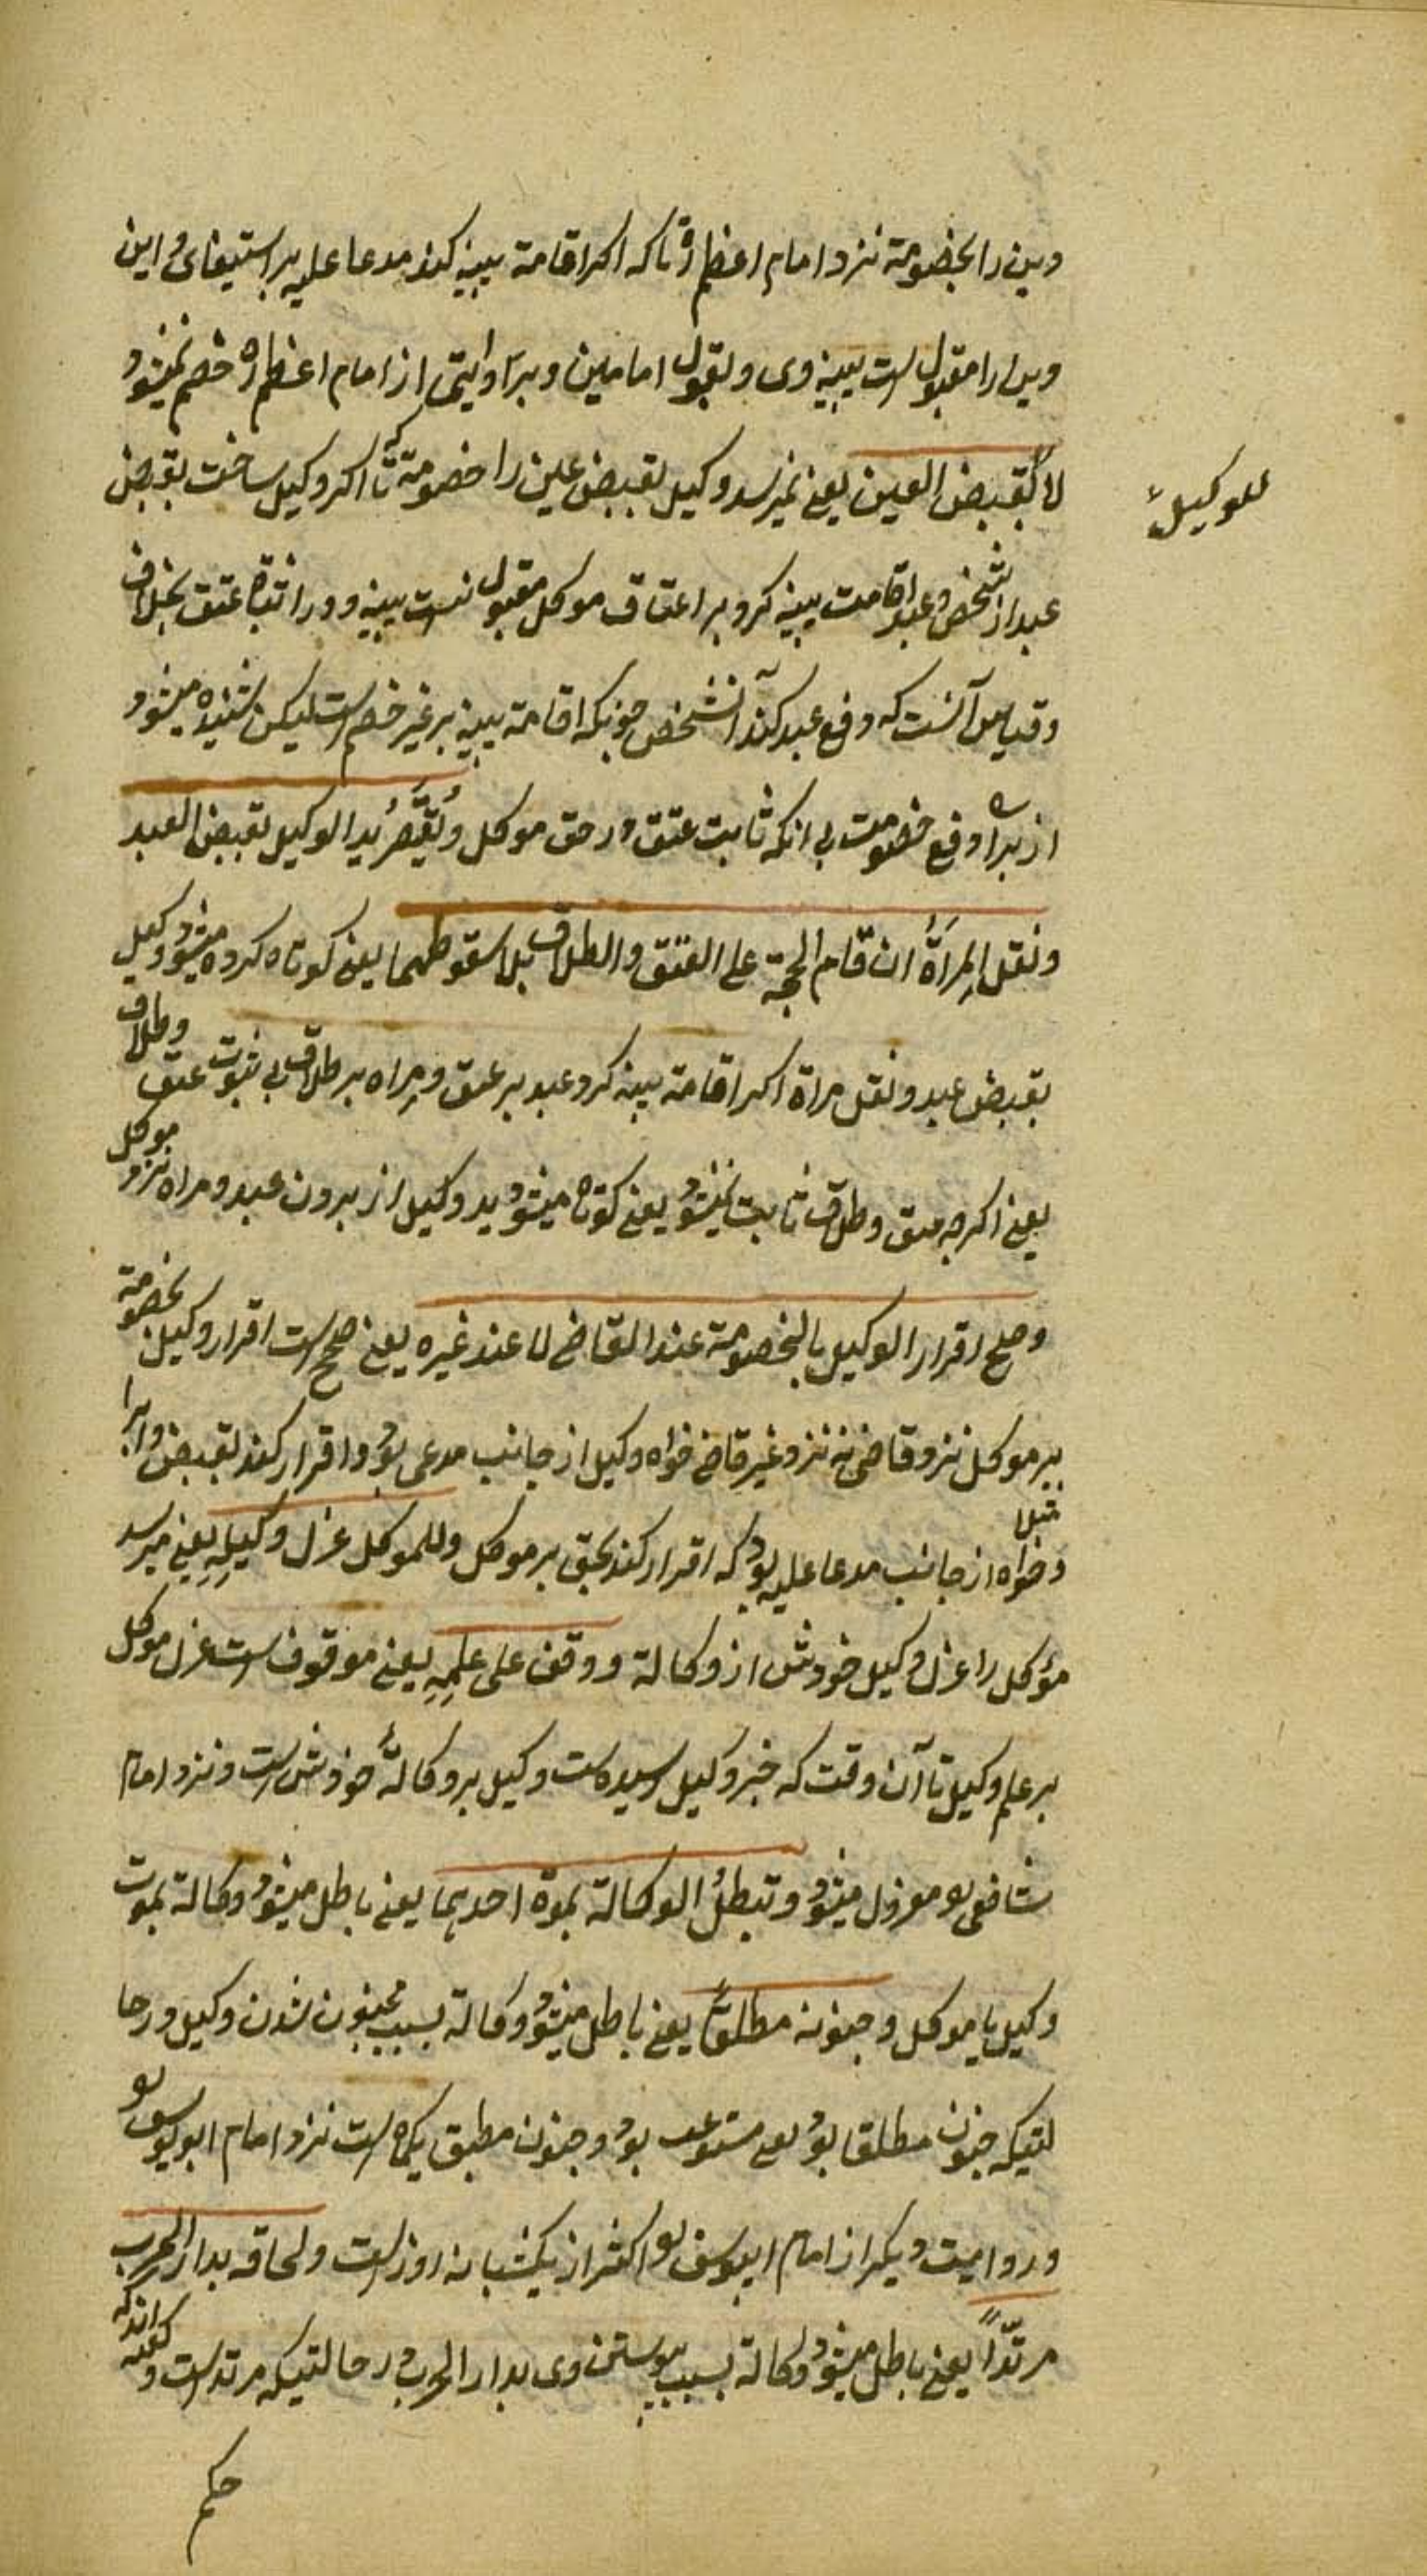 دین را بخصومة نزد امام اعظم رہ تا که اکر اقامة بینه کند مدعا علیه بر استیفای داین
دین را مقبول است بینه وی و بقول امامین و بر روایتی از امام اعظم رہ خصم نمیشود
لا بقبض العین یعنے نمیرسد وکیل بقبض عین را خصومة تا که اکر وکیل ساخت بقبض
للوکیل
عبد از شخص و عبد اقامت بینه کرد بر اعتاق موکل مقبول نیست بینه و در اثبات عتق بخلاف
وقیاس آنست که دفع عبد کند آنشخص چونکه اقامة بینه بر غیر خصم است لیکن شنیده میشود
از برای دفع خصومت بی انکه ثابت عتق در حق موکل و یُقَصَّرُ ید الوکیل بقبض العبد
ونقل المِرأةُ ان قام الحجة على العتق والطلاق بلا سقوطهما یعنے کوتاه کرده میشود وکیل
بقبض عبد و نقل مراة اکر اقامة بینه کرد عبد بر عتق و مراه بر طلاق بی ثبوت عتق وطلاق
یعنے اکرچه عتق و طلاق ثابت نمیشود یعنے کوتاه میشود ید وکیل از بردن عبد و مراه نزد موکل
وصح اقرار الوکیل بالخصومة عند القاضے لا عند غیره یعنے صحیح است اقرار وکیل بخصومة
بر موکل نزد قاضی نه نزد غیر قاضے خواه وکیل از جانب مدعی بود و اقرار کند بقبض و ابرا مثلا
و خواه از جانب مدعا علیه بود که اقرار کند بحق بر موکل وللموکل عزل وکیلِهِ یعنے میرسد
موکل را عزل وکیل خودش از وکالة ووقف على علمِهِ یعنے موقوف است عزل موکل
بر علم وکیل تا آن وقت که خبر وکیل رسیده است وکیل بر وکالۀ خودش است و نزد امام
شافعی رہ معزول میشود وتبطلُ الوکالة بموة احدهما یعنے باطل میشود وکالة بموت
وکیل یا موکل وجنونه مطلقًا یعنے باطل میشود وکالة بسبب مجنون شدن وکیل در حا
لتیکه جنون مطلقا بود یعنے مستوعب بود و جنون مطبق یکماه است نزد امام ابویوسف رہ
و روایت دیکر از امام ابویوسف رہ اکثر از یکشبانه روز است ولحاقه بدار الحرب
مرتدًّا یعنے باطل میشود وکالة بسبب پیوستن وی بدار الحرب در حالتیکه مرتد است وکفته اندکه
حکم